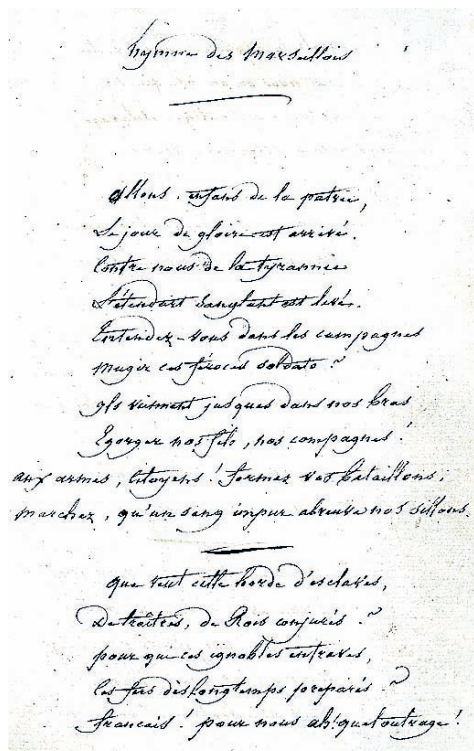 hymne des Marseillois
allons enfans de la patrie,
Le jour de gloire est arrivé.
Contre nous de la tyrannie
L'étendart sanglant est levé.
Entendez-vous dans les campagnes
mugir ces féroces soldats ?
ils viennent jusques dans nos bras
Egorger nos fils, nos compagnes !
aux armes, citoyens ! formez vos bataillons ;
marchez, qu'un sang impur abreuve nos sillons.
que veut cette horde d'esclaves,
De traîtres, de Rois conjurés ?
pour qui ces ignobles entraves,
Ces fers dès longtemps préparés ?
français ! pour nous ah ! quel outrage !